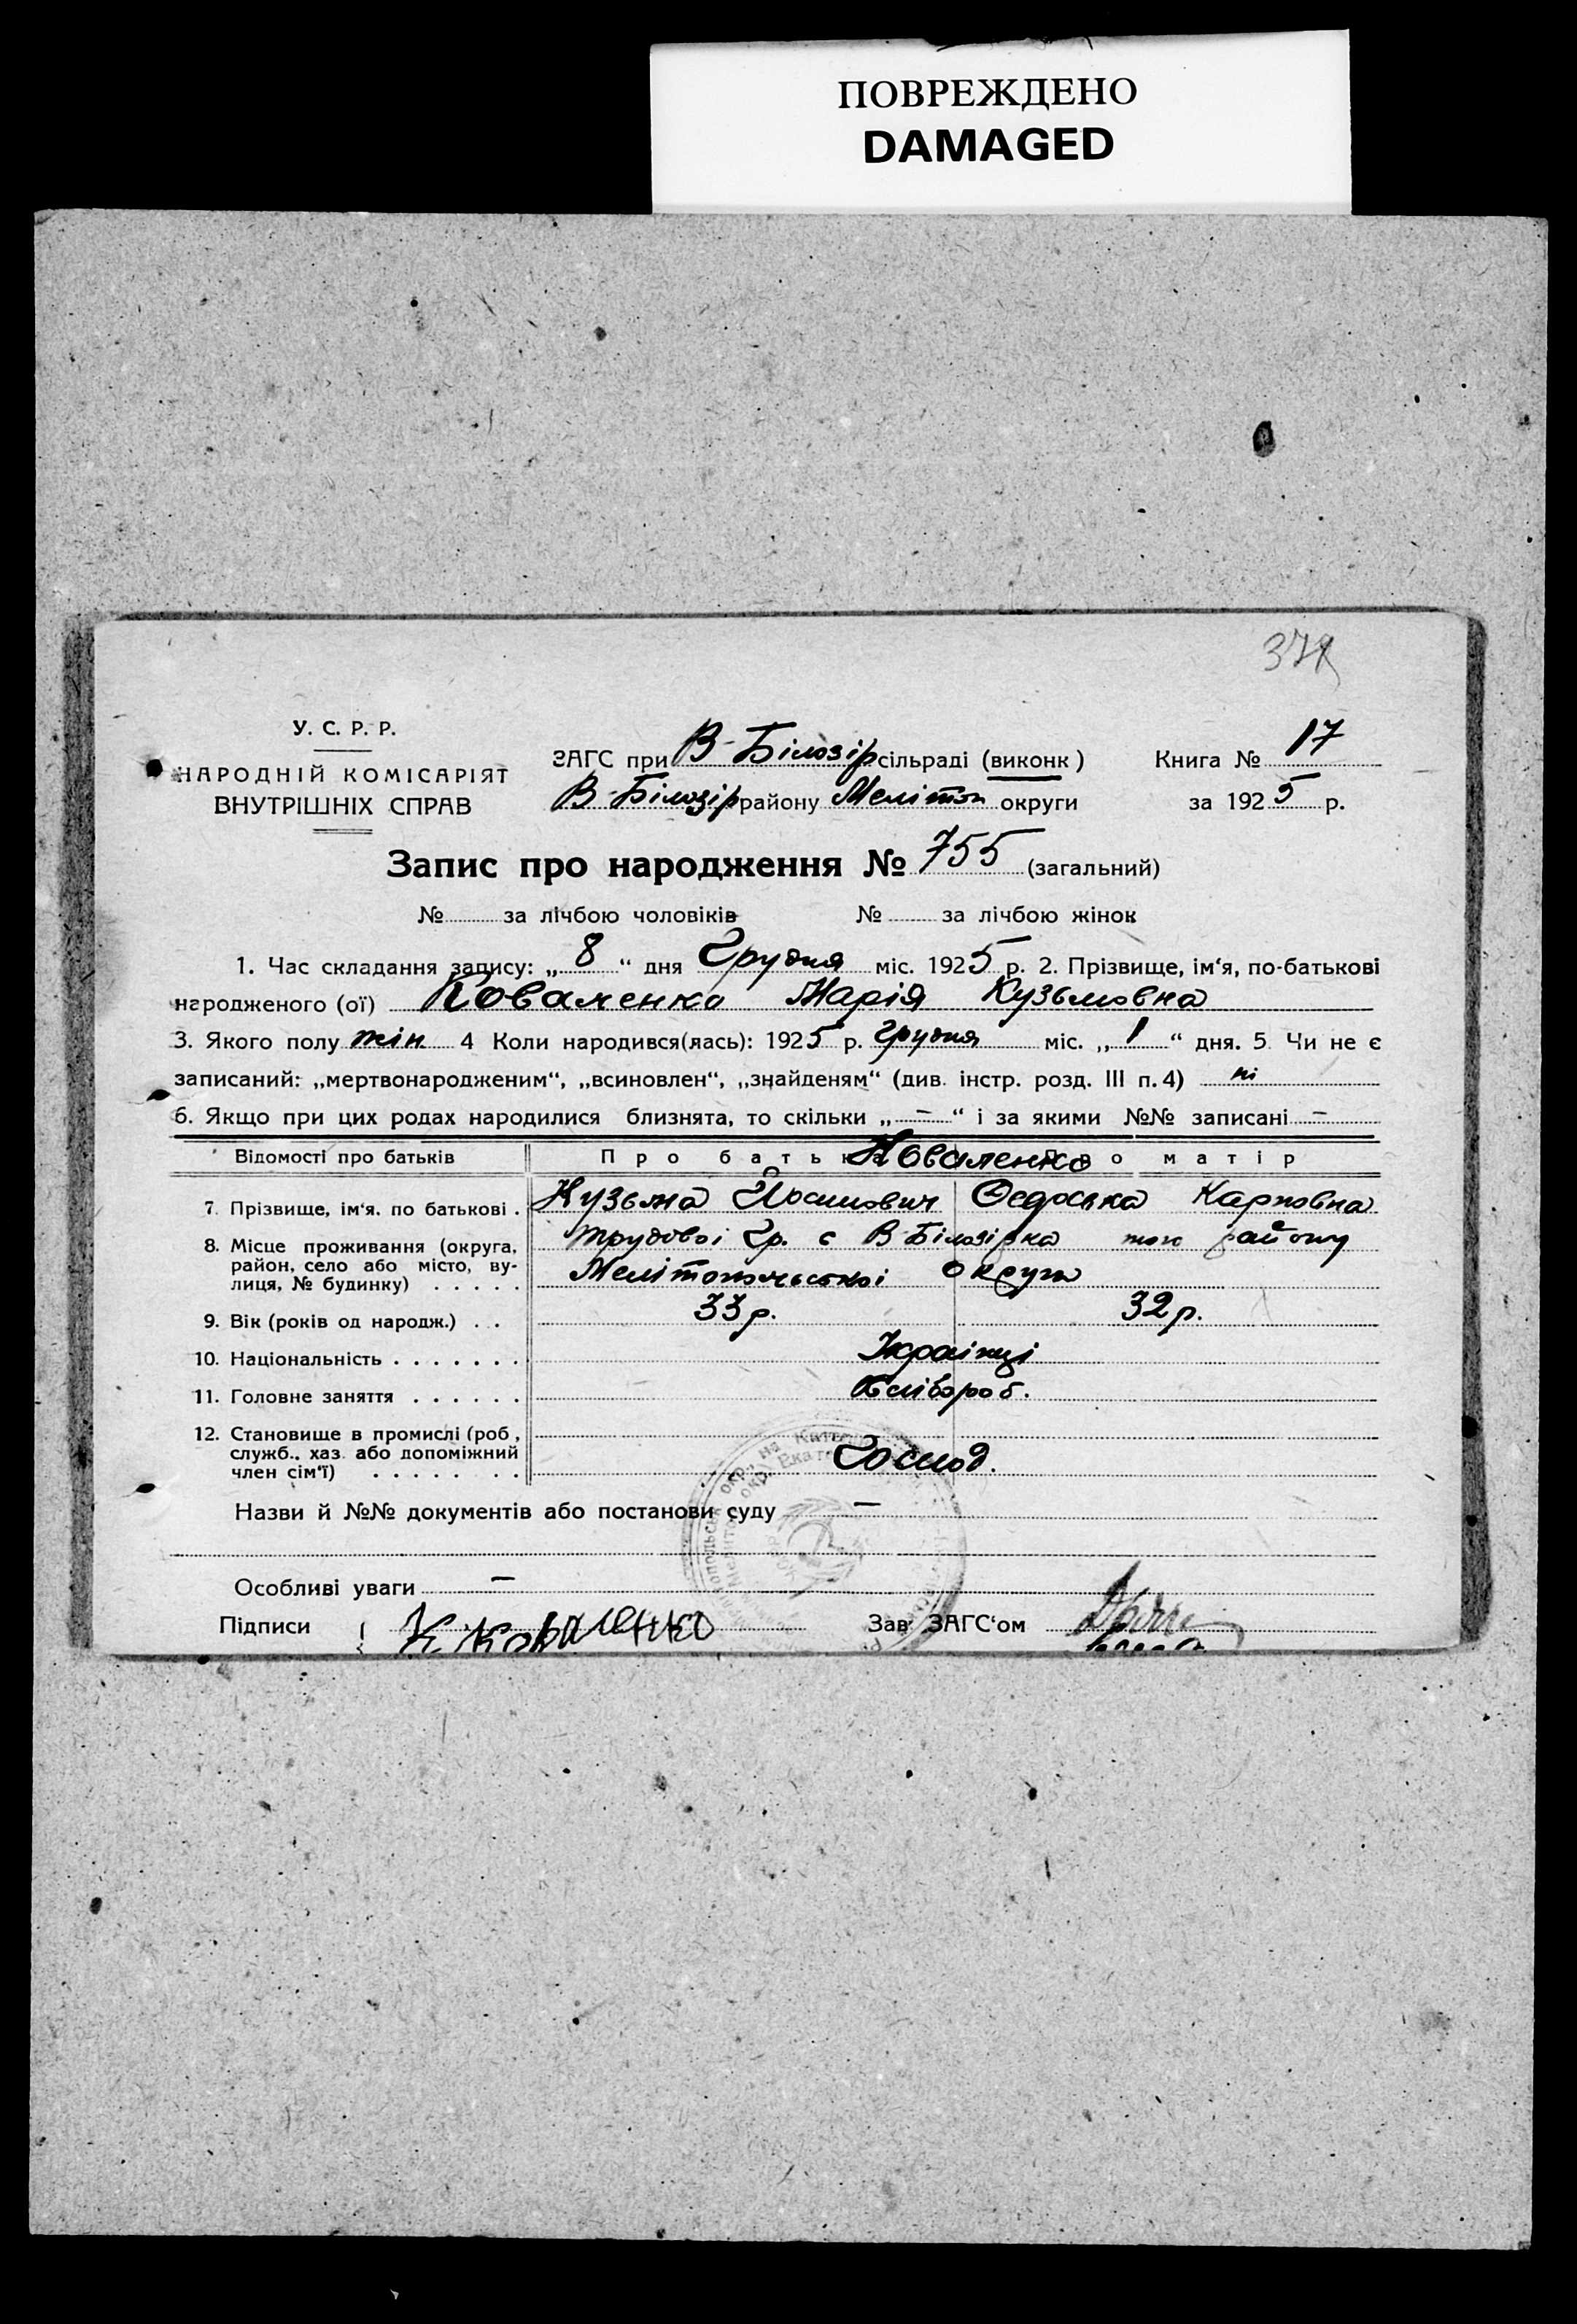 ПОВРЕЖДЕНО
DAMAGED
У. С. Р. Р.
НАРОДНІЙ КОМІСАРІЯТ
ВНУТРІШНІХ СПРАВ
ЗАГС при В-Білозір сільраді (виконк)
Книга № 17
В-Білозір району Мелітоп округи
за 1925 р.
Запис про народження № 755 (загальний)
№ за лічбою чоловіків № за лічбою жінок
1. Час складання запису: „ 8 “ дня Грудня міс. 1925 р. 2. Прізвище, ім‘я, по-батькові
народженого (ої) Коваленко Марія Кузьмовна
3. Якого полу жін. 4 Коли народився(лась): 1925 р. грудня міс. „ 1 “ дня. 5. Чи не є
записаний: „мертвонародженим“, „всиновлен“, „знайденям“ (див. інстр. розд. III п. 4) ні
6. Якщо при цих родах народилися близнята, то скільки „ — “ і за якими №№ записані —
Відомості про батьків Про батька Про матір
Коваленко
7. Прізвище, ім‘я. по батькові . Кузьма Йосипович Федоська Карповна
8. Місце проживання (округа, район, село або місто, вулиця, № будинку) . . . . .
Трудовоі Гр. с В Білозірка того району
Мелітопольськоі Округи
9. Вік (років од народж.) . . 33 р. 32 р.
10. Національність . . . . . . . Українці
11. Головне заняття . . . . . . Хлібороб.
12. Становище в промислі (роб., служб., хаз. або допоміжний член сім‘ї) . . . . . . . Господ.
Назви й №№ документів або постанови суду —
Особливі уваги —
Підписи К Коваленко Зав. ЗАГС‘ом